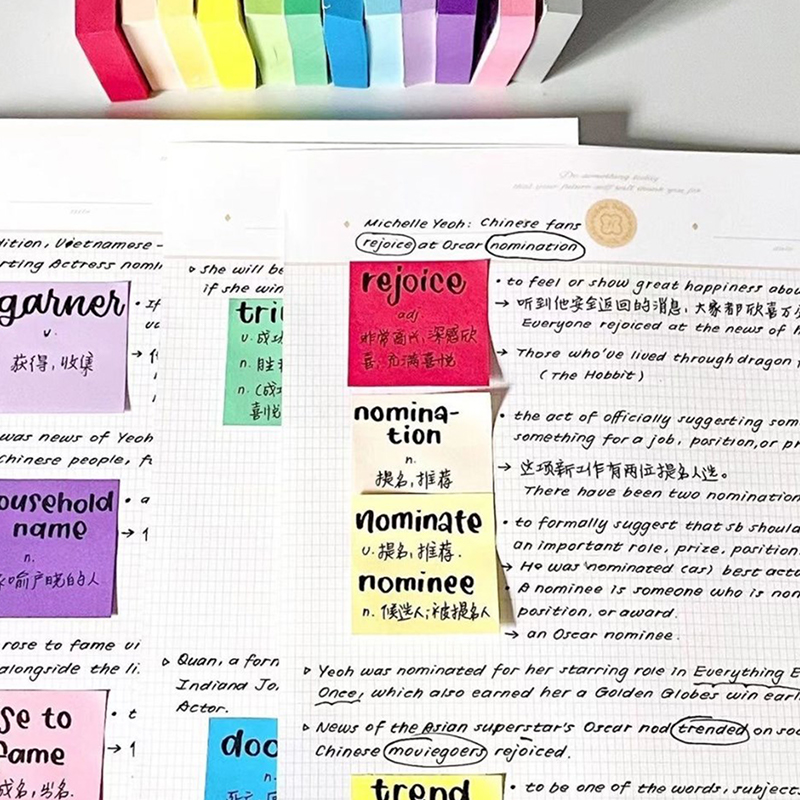 Do something today
that your future self will thank you for
Michelle Yeoh: Chinese fans
rejoice at Oscar nomination
rejoice
adj.
非常高兴,深感欣
喜,充满喜悦
• to feel or show great happiness abou
→ 听到他安全返回的消息,大家都欣喜万
Everyone rejoiced at the news of h
→ Those who've lived through dragon f
(The Hobbit)
nomina-
tion
n.
提名,推荐
• the act of officially suggesting som
something for a job, position, or pr
→ 这项新工作有两位提名人选。
There have been two nomination
nominate
v. 提名,推荐.
nominee
n. 候选人;被提名人
• to formally suggest that sb should
an important role, prize, position
→ He was nominated (as) best acto
• A nominee is someone who is nom
position, or award.
→ an Oscar nominee.
▹ Yeoh was nominated for her starring role in Everything E
Once, which also earned her a Golden Globes win earl
▹ News of the Asian superstar's Oscar nod trended on soc
Chinese moviegoers rejoiced.
trend
• to be one of the words, subject
▹ she will be
if she win
tri
v. 成功
n. 胜利
n. (成功
喜悦
▹ Quan, a forn
Indiana Jo
Actor.
doc
n.
dition, Vietnamese-
rting Actress nomi
garner
v.
获得,收集
• If
→
was news of Yeoh
hinese people, f
ousehold
name
n.
喻户晓的人
• a
→
rose to fame vi
alongside the li
se to
fame
成名,出名.
• t
→